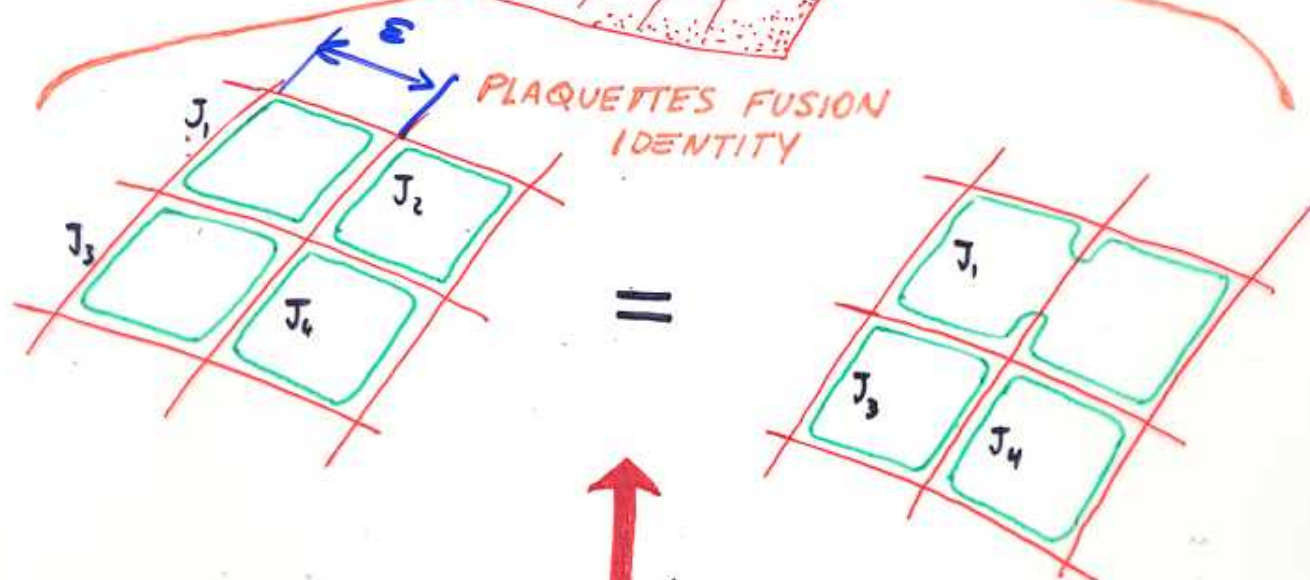 ε
PLAQUETTES FUSION
IDENTITY
J₁
J₂
J₃
J₄
=
J₁
J₃
J₄